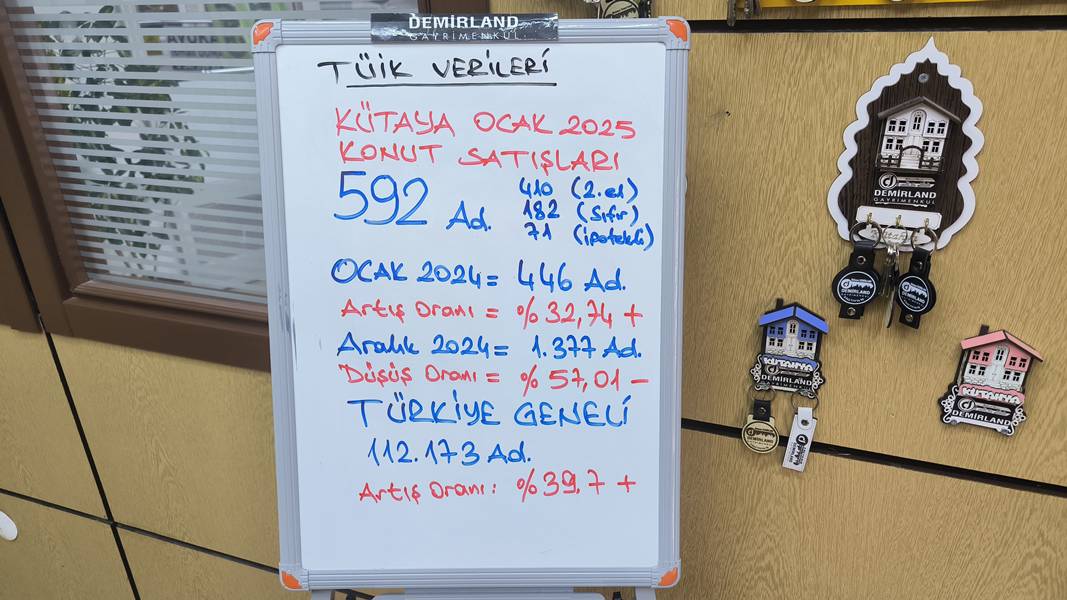 DEMİRLAND
GAYRİMENKUL
TÜİK VERİLERİ
KÜTAYA OCAK 2025
KONUT SATIŞLARI
592 Ad.
410 (2.el)
182 (Sıfır)
71 (ipotekli)
OCAK 2024= 446 Ad.
Artış Oranı = %32,74 +
Aralık 2024= 1.377 Ad.
Düşüş Oranı = %57,01 -
TÜRKİYE GENELİ
112.173 Ad.
Artış Oranı: %39.7 +
DEMİRLAND
GAYRİMENKUL
Kütahya
DEMİRLAND
DEMİRLAND
KÜTAHYA
DEMİRLAND
DEMİRLAND
KÜTAHYA
DEMİRLAND